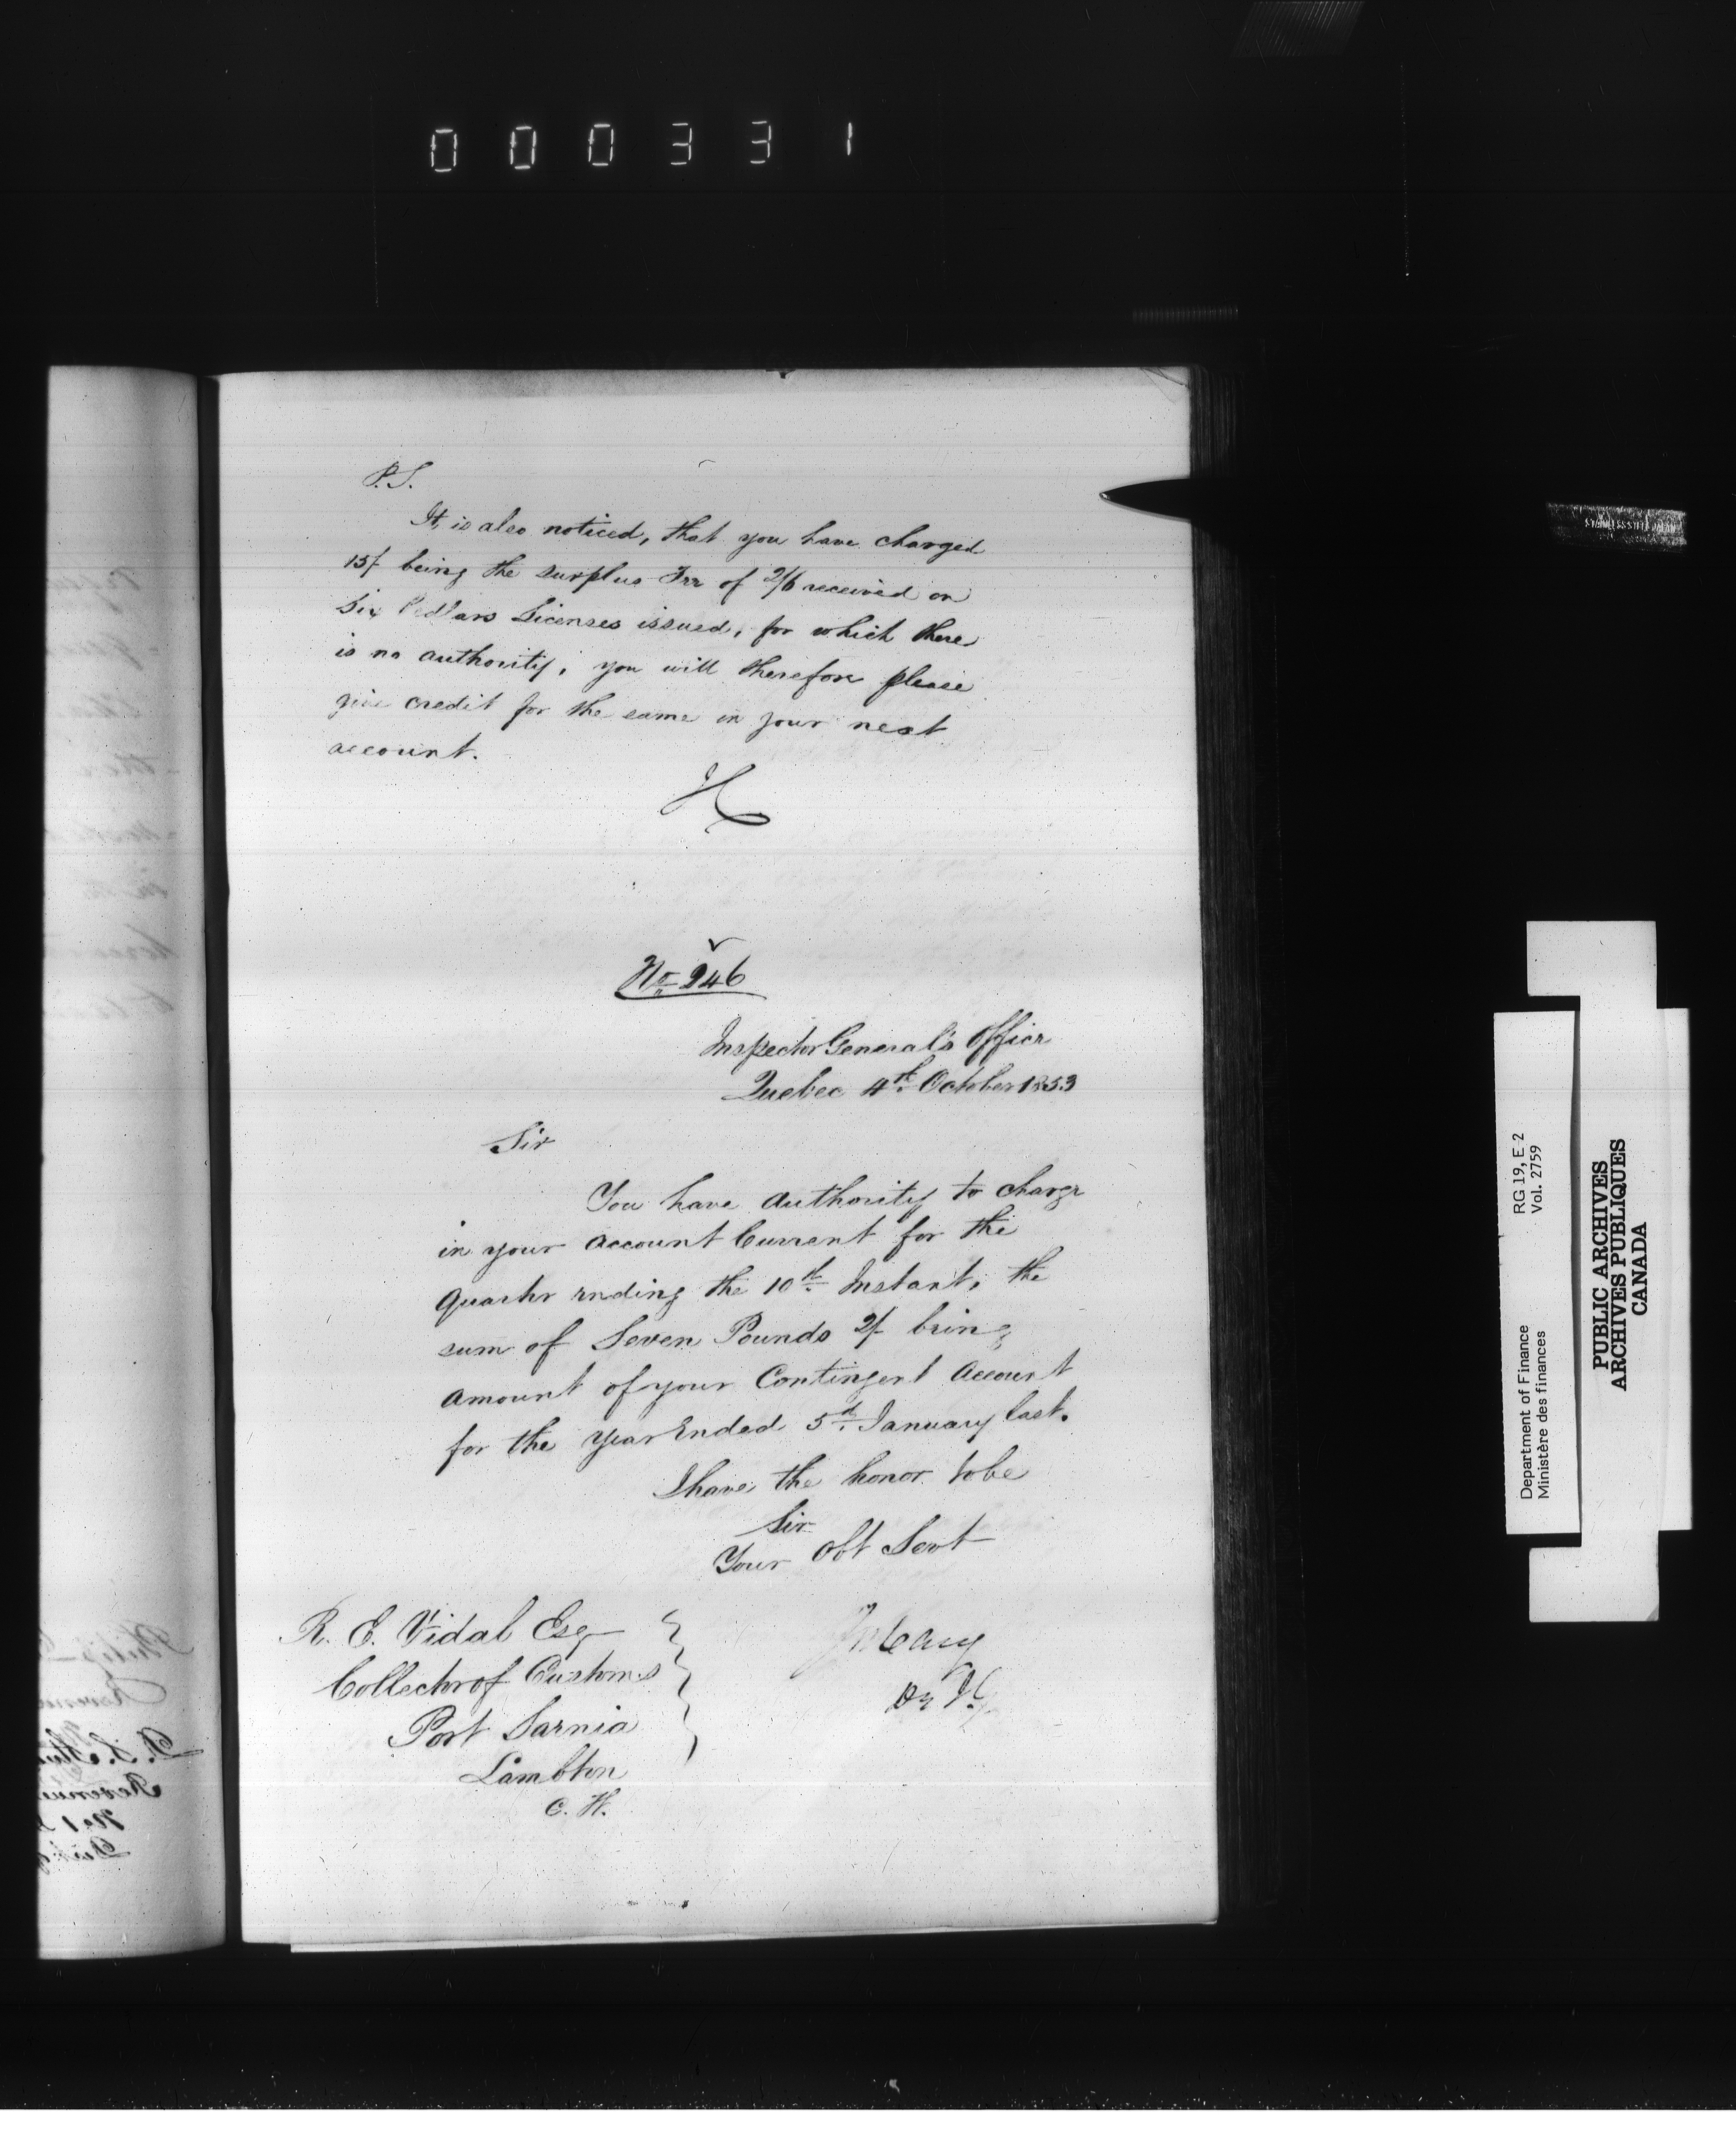 000331
P.S.
It is also noticed, that you have charged
15/ being the surplus Fee of 2/6 received on
Six Pedlars Licenses issued, for which there
is no authority, you will therefore please
give credit for the same in your next
account.
H
No 246
Inspector General's Office
Quebec 4th October 1853
Sir
You have authority to charge
in your Account Current for the
Quarter ending the 10th Instant, the
sum of Seven Pounds 2/ being
amount of your Contingent Account
for the year Ended 5th January last.
I have the honor to be
Sir
Your Obt Servt
R. E. Vidal Esq
Collector of Customs
Port Sarnia
Lambton
C. W.
J W Cary
STAINLESS STEEL JAPAN
RG 19, E 2
Vol. 2759
Department of Finance
Ministère des finances
PUBLIC ARCHIVES
ARCHIVES PUBLIQUES
CANADA